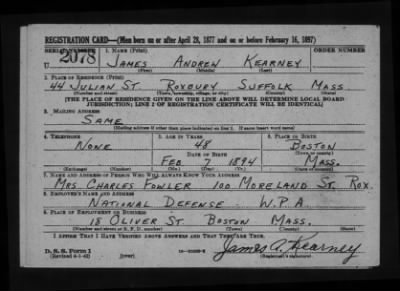 REGISTRATION CARD—(Men born on or after April 28, 1877 and on or before February 16, 1897)
SERIAL NUMBER 1. NAME (Print) ORDER NUMBER
U 2078 JAMES ANDREW KEARNEY
(First) (Middle) (Last)
2. PLACE OF RESIDENCE (Print)
44 JULIAN ST. ROXBURY SUFFOLK MASS.
(Number and street) (Town, township, village, or city) (County) (State)
[THE PLACE OF RESIDENCE GIVEN ON THE LINE ABOVE WILL DETERMINE LOCAL BOARD
JURISDICTION; LINE 2 OF REGISTRATION CERTIFICATE WILL BE IDENTICAL]
3. MAILING ADDRESS
SAME
[Mailing address if other than place indicated on line 2. If same insert word same]
4. TELEPHONE 5. AGE IN YEARS 6. PLACE OF BIRTH
NONE 48 BOSTON
DATE OF BIRTH (Town or county)
FEB 7 1894 MASS.
(Exchange) (Number) (Mo.) (Day) (Yr.) (State or country)
7. NAME AND ADDRESS OF PERSON WHO WILL ALWAYS KNOW YOUR ADDRESS
MRS CHARLES FOWLER 100 MORELAND ST. ROX.
8. EMPLOYER'S NAME AND ADDRESS
NATIONAL DEFENSE - W.P.A.
9. PLACE OF EMPLOYMENT OR BUSINESS
18 OLIVER ST. BOSTON MASS.
(Number and street or R. F. D. number) (Town) (County) (State)
I AFFIRM THAT I HAVE VERIFIED ABOVE ANSWERS AND THAT THEY ARE TRUE.
D. S. S. Form 1 James A. Kearney
(Revised 4-1-42) (over) (Registrant's signature)